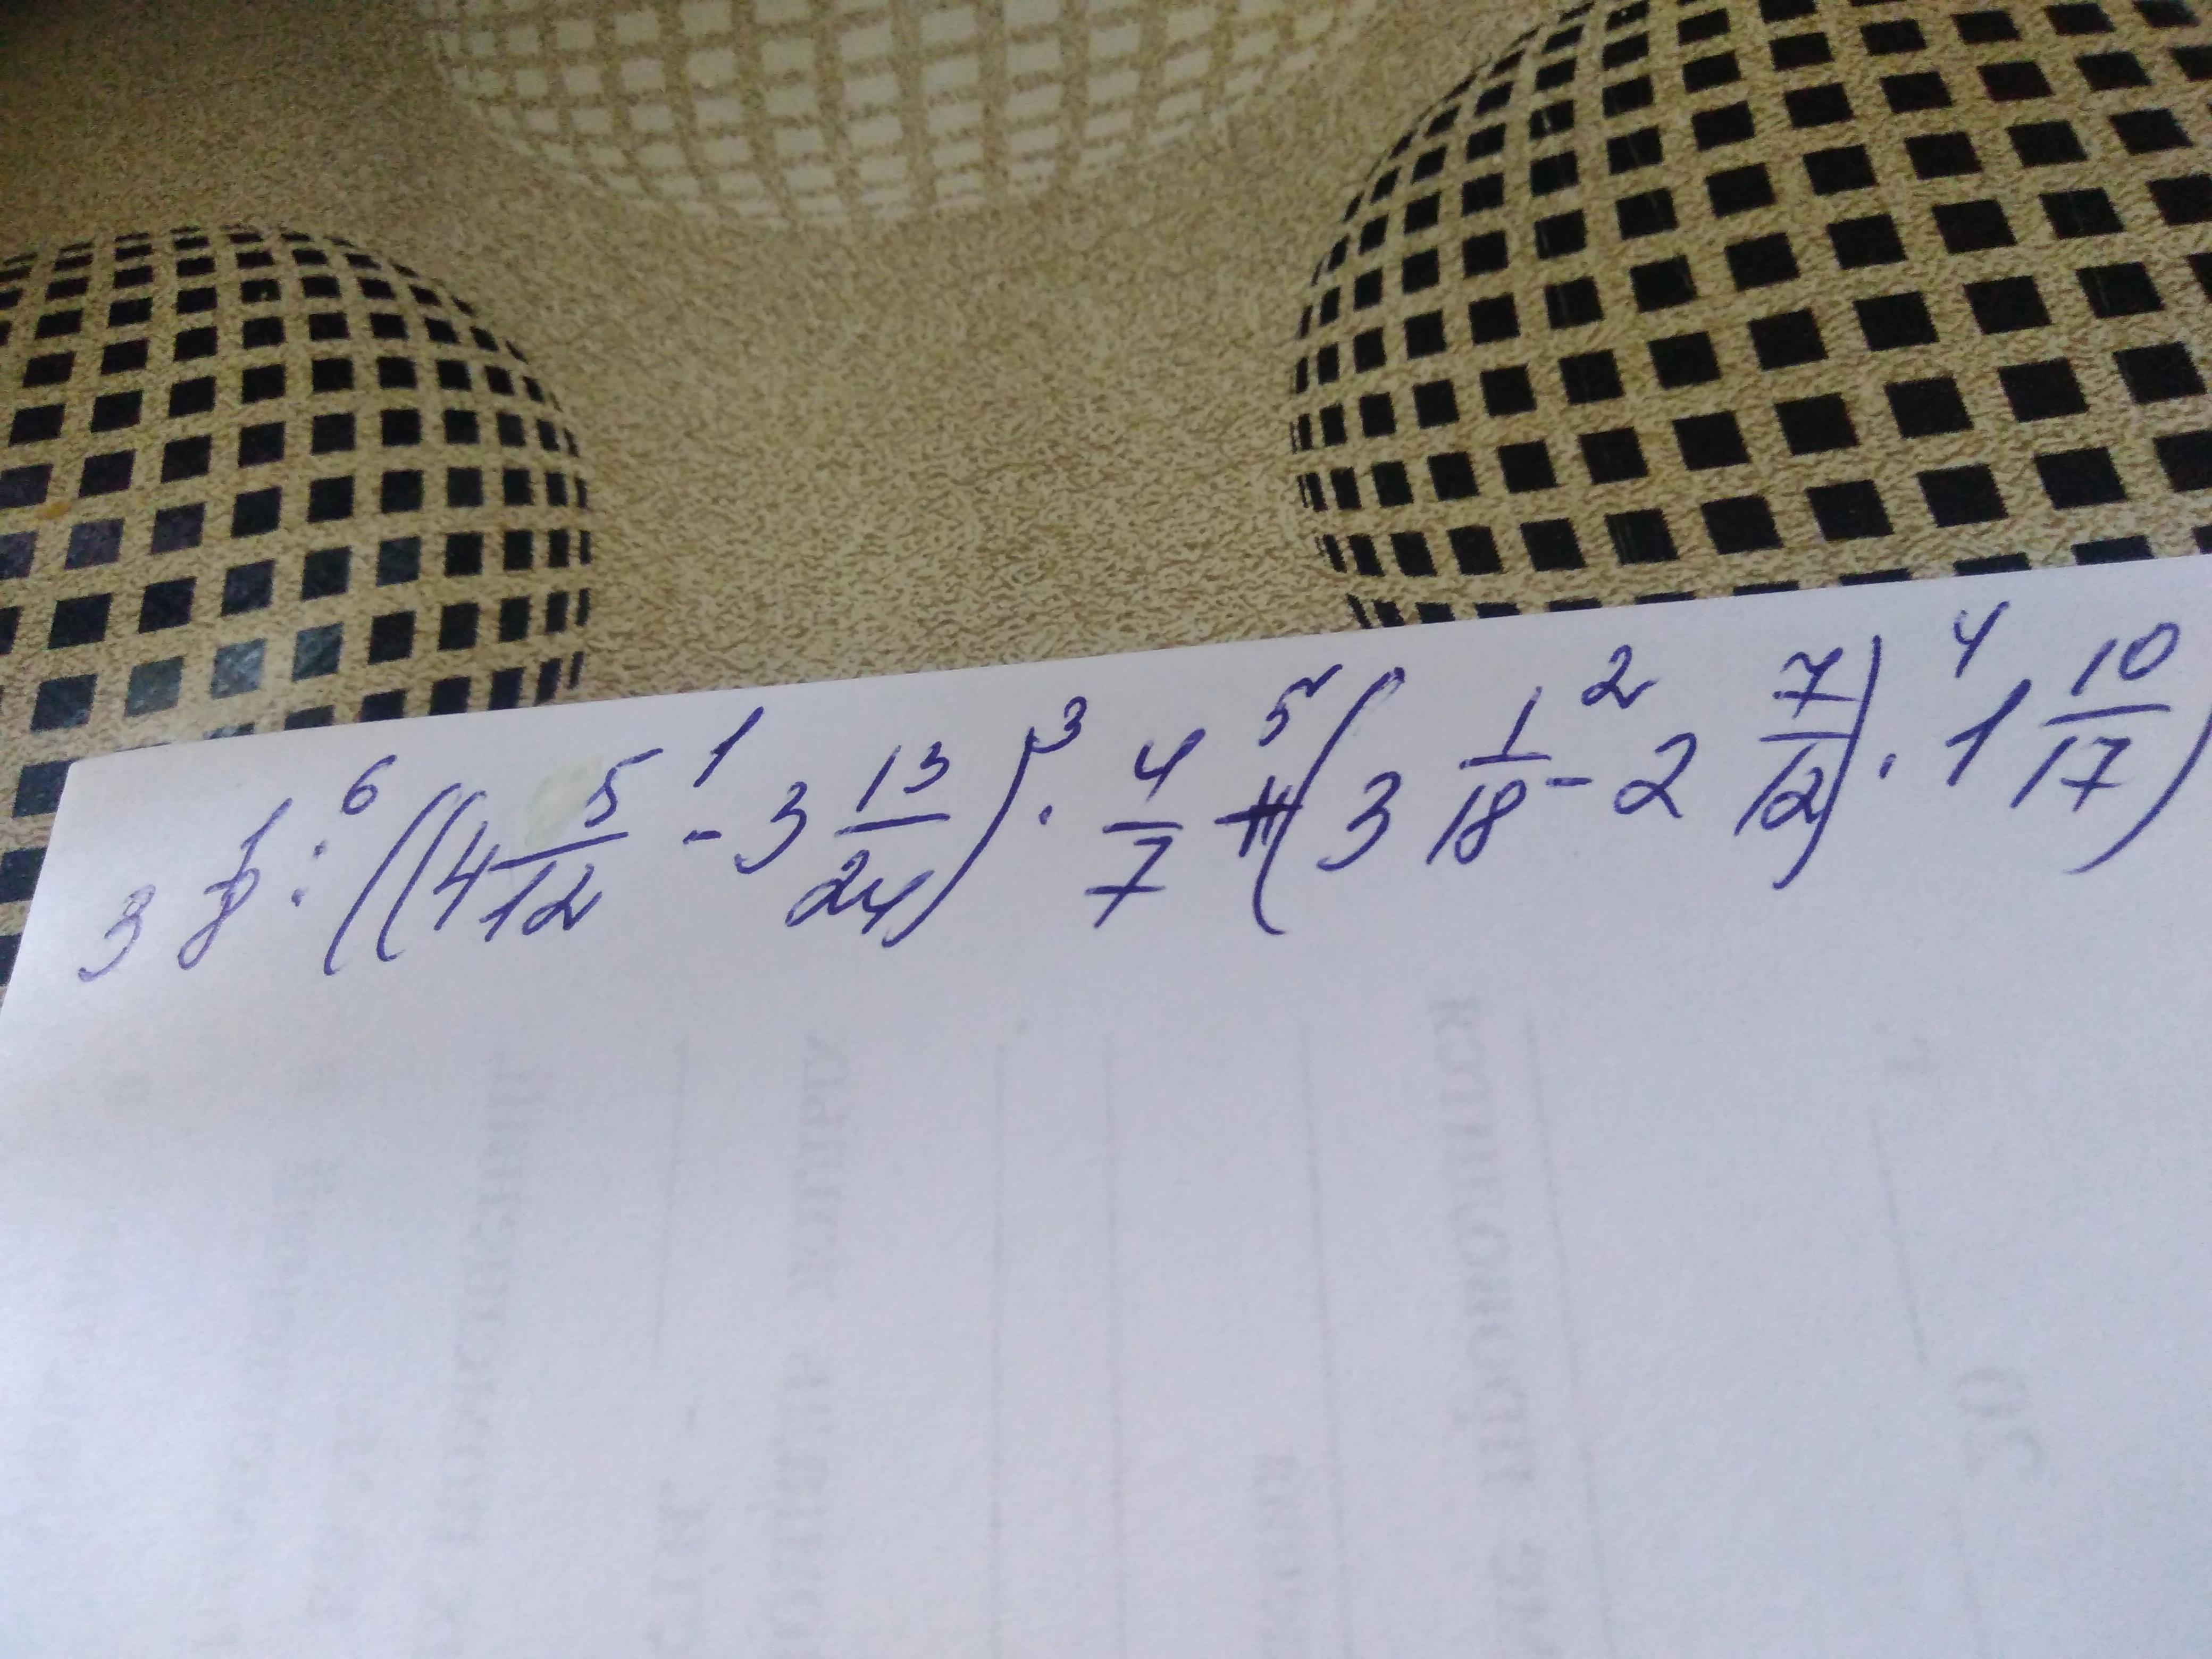 3 1/8 :⁶ ((4 5/12 -¹ 3 13/24) ·³ 4/7 +⁵ (3 1/18 -² 2 7/12) ·⁴ 1 10/17)